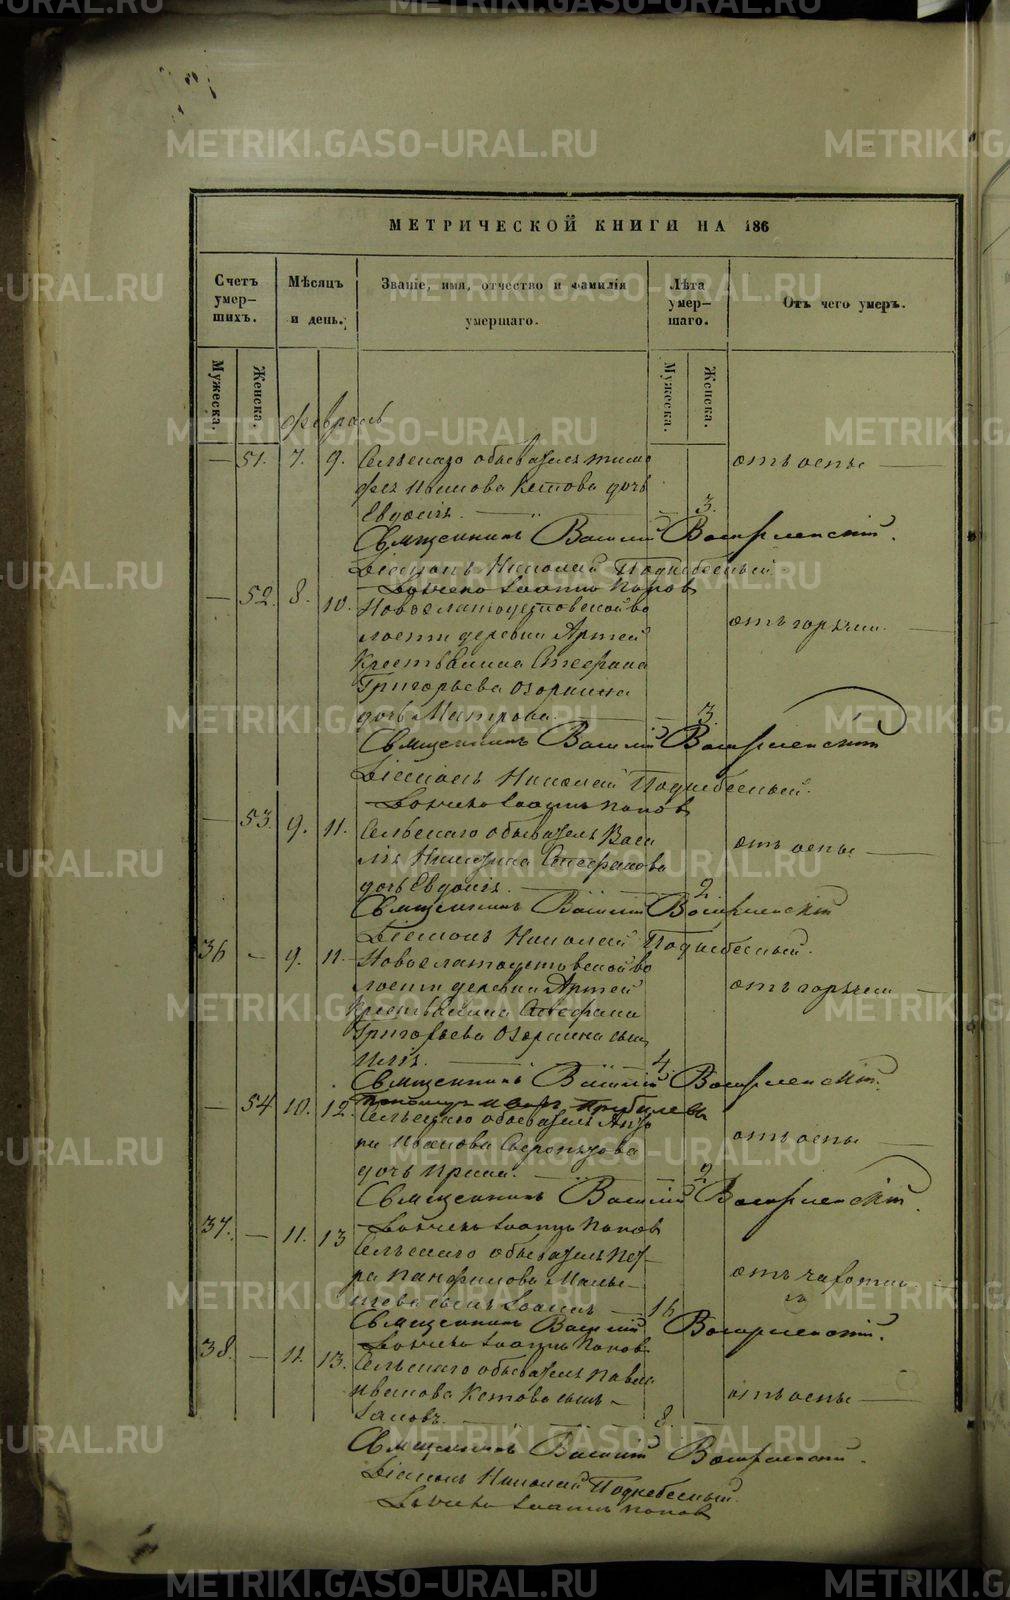 МЕТРИЧЕСКОЙ КНИГИ НА 186
Счетъ умер-шихъ.
Мѣсяцъ и день.
Званіе, имя, отчество и фамилія умершаго.
Лѣта умер-шаго.
Отъ чего умеръ.
Мужеска.
Женска.
Мужеска.
Женска.
февраль
— 51. 7. 9. Сельскаго обывателя Тимо отъ оспы
фея Кетова дочь
Евдокія. 3.
Священникъ Василій Воскресенскій.
Діаконъ Николай Поднебесный
Дьячекъ Іоаннъ Попов
— 52. 8. 10. Новозлатоустовской во отъ горячки
лости деревни Артей
Крестьянина Стефана
Григорьева Озорнина
дочь Матрона. 3.
Священникъ Василій Воскресенскій
Діаконъ Николай Поднебесный.
Дьячекъ Іоаннъ Попов
— 53. 9. 11. Сельскаго обывателя Васи отъ оспы
дочь Евдокія. 2
Священникъ Василій Воскресенскій
Діаконъ Николай Поднебесный.
36 — 9. 11. Новозлатоустовской во
лости деревни Артей отъ горячки
Крестьянина Стефана
Григорьева Озорнина сынъ
Илія. 4.
Священникъ Василій Воскресенскій.
— 54 10. 12. Сельскаго обывателя отъ оспы
Иванова
дочь Ирина. 2.
Священникъ Василій Воскресенскій.
Дьячекъ Іоаннъ Попов
37. — 11. 13 Сельскаго обывателя Пет-
ра Панфилова Малы- отъ чахотки
шева сынъ Іоаннъ 16
Священникъ Василій Воскресенскій.
Дьячекъ Іоаннъ Попов
38. — 11. 13. Сельскаго обывателя Павла
Иванова Кетова сынъ отъ оспы
Іаковъ. 8.
Священникъ Василій Воскресенскій.
Діаконъ Николай Поднебесный
Дьячекъ Іоаннъ Попов
METRIKI.GASO-URAL.RU